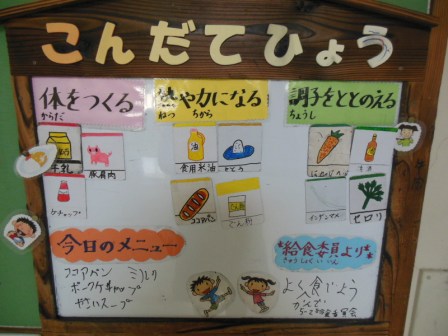 こんだてひょう
体をつくる
からだ
熱や力になる
ねつ ちから
調子をととのえる
ちょうし
牛乳
豚肩肉
ケチャップ
油
食用米油
さとう
ココアパン
でん粉
にんじん
インゲンマメ
セロリ
今日のメニュー
ココアパン ミルク
ポークケチャップ
やさいスープ
給食委員より
きゅうしょくいいん
よく食べよう